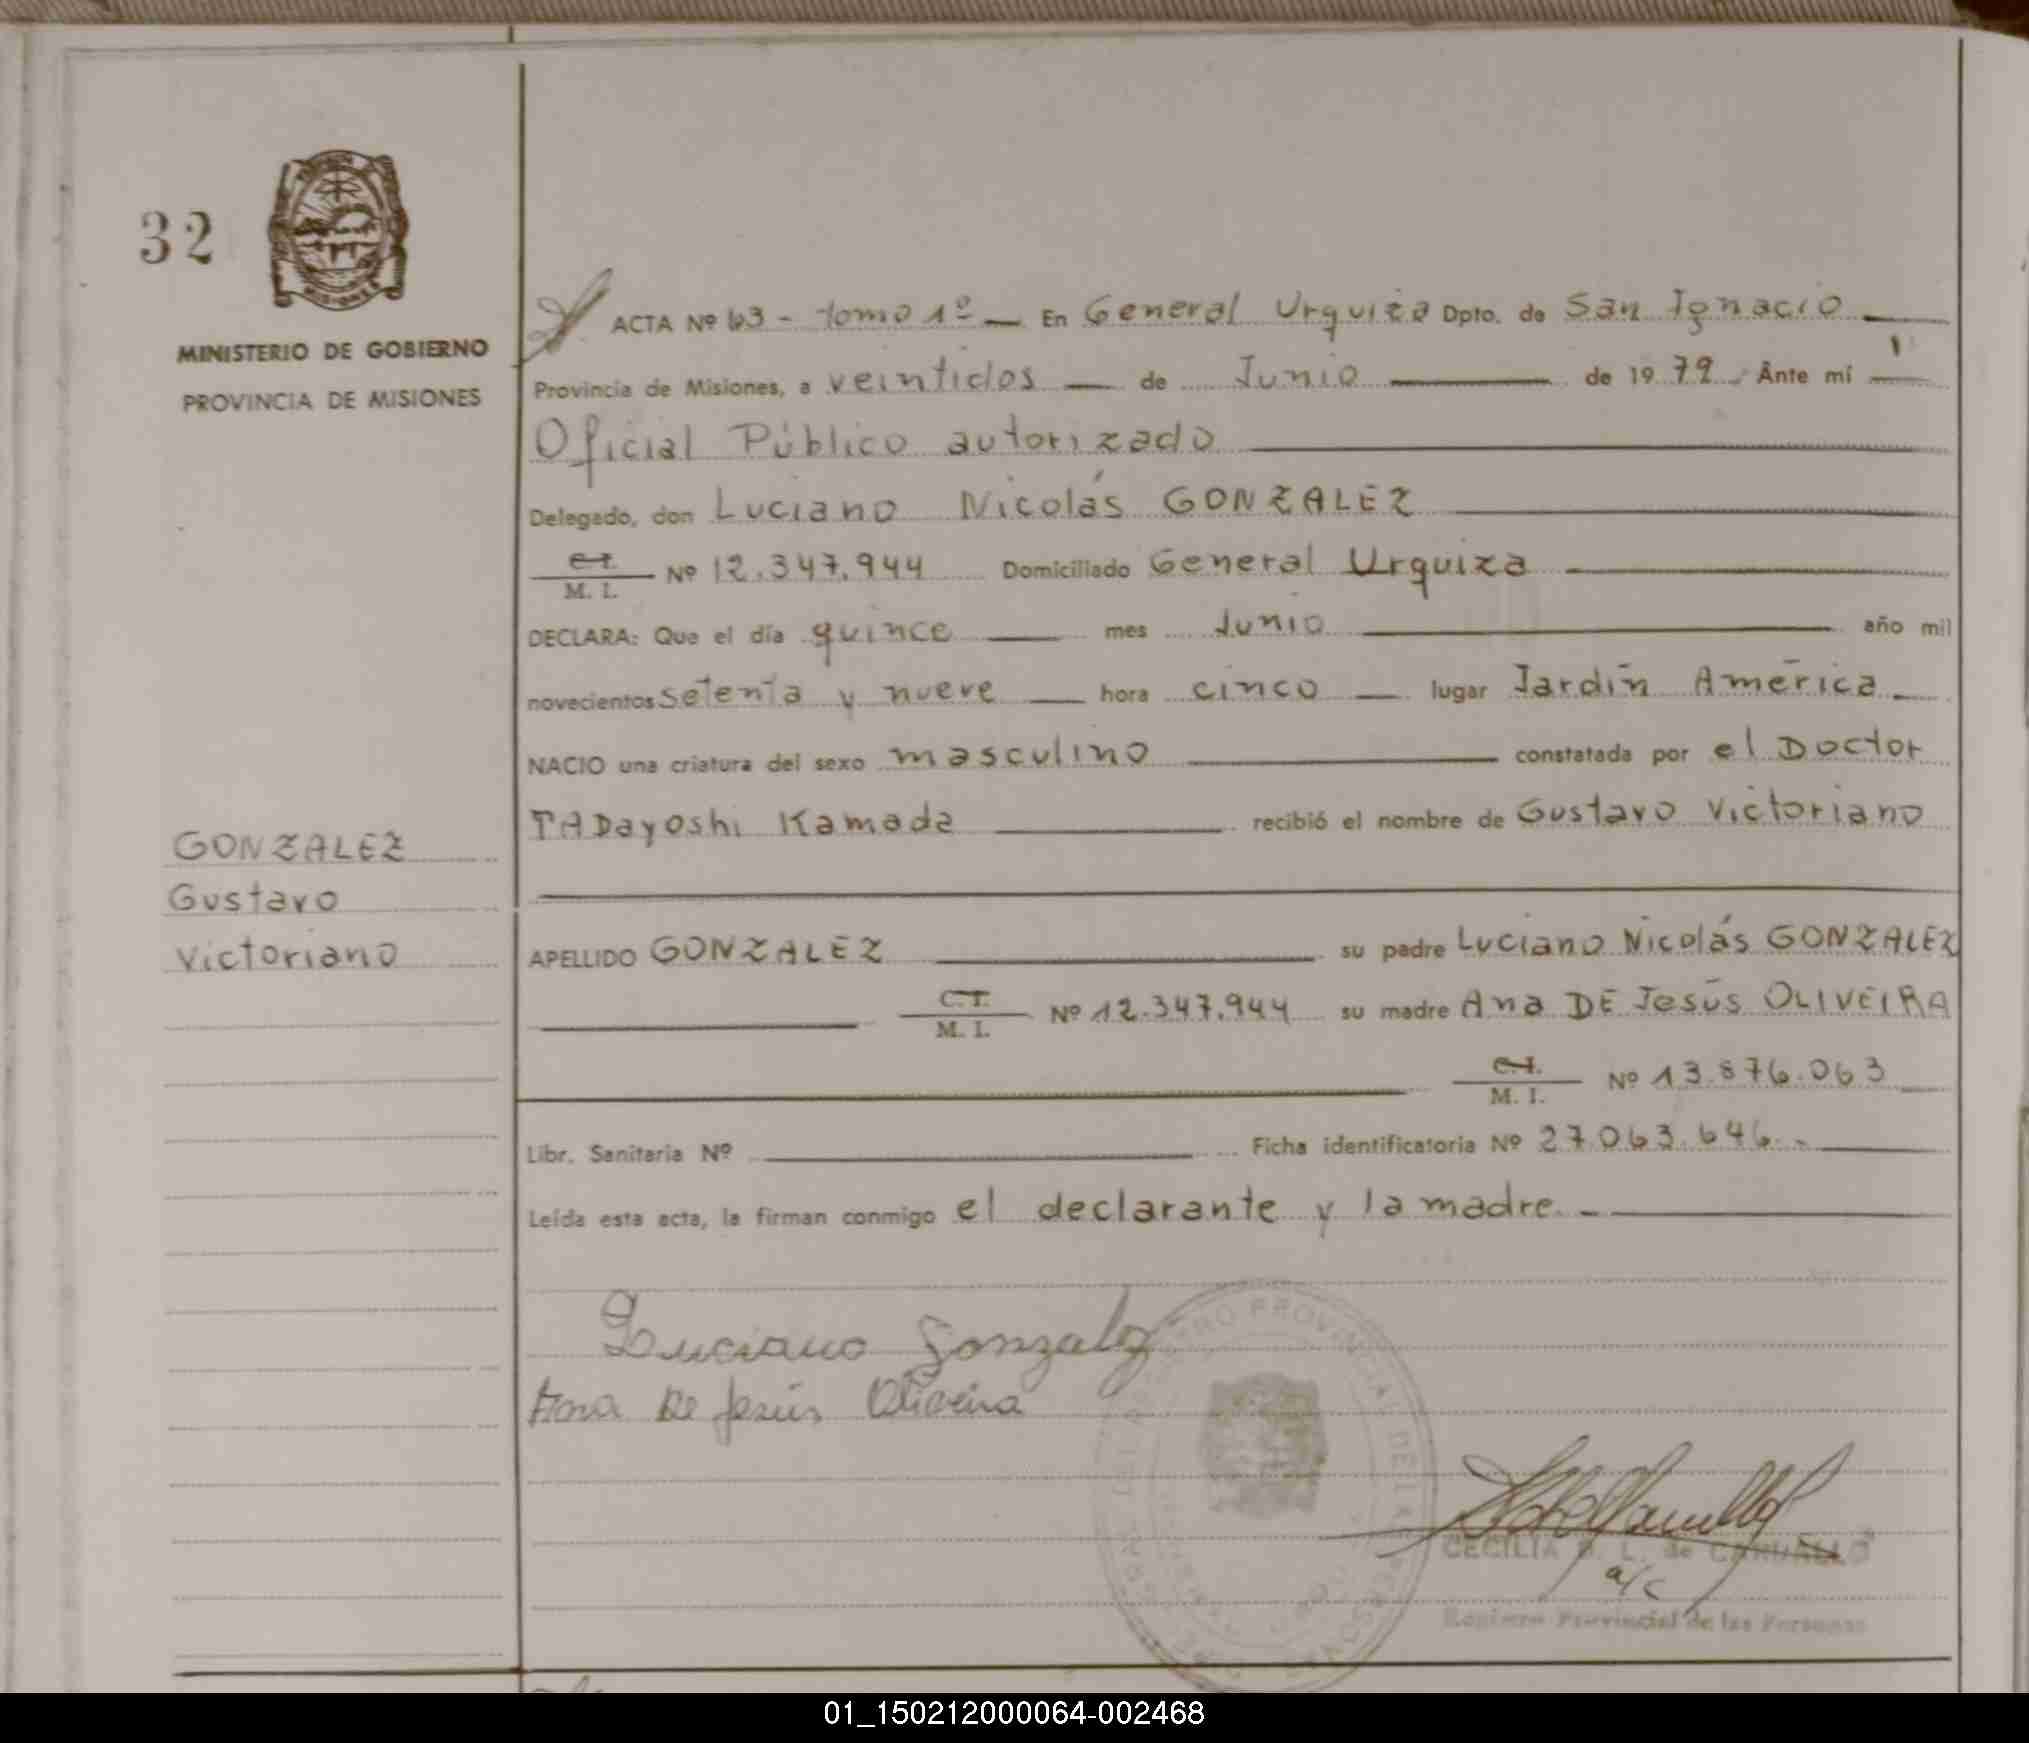 32
MINISTERIO DE GOBIERNO
PROVINCIA DE MISIONES
ACTA Nº 63 - tomo 1º — En General Urquiza Dpto. de San Ignacio
Provincia de Misiones, a veintidos — de Junio — de 1979. Ante mí
Oficial Público autorizado
Delegado, don Luciano Nicolás GONZALEZ
C.I.
M. I. Nº 12.347.944 Domiciliado General Urquiza
DECLARA: Que el día quince — mes Junio — año mil
novecientos setenta y nueve — hora cinco — lugar Jardín América
NACIO una criatura del sexo masculino — constatada por el Doctor
TADayoshi Kamada — recibió el nombre de Gustavo Victoriano
GONZALEZ
Gustavo
Victoriano
APELLIDO GONZALEZ — su padre Luciano Nicolás GONZALEZ
C.I.
M. I. Nº 12.347.944 su madre Ana DE Jesús OLIVEIRA
C.I.
M. I. Nº 13.876.063
Libr. Sanitaria Nº — Ficha identificatoria Nº 27.063.646.-
Leída esta acta, la firman conmigo el declarante y la madre.-
Luciano Gonzalez
Ana De Jesús Oliveira
REGISTRO PROVINCIAL DE LAS PERSONAS
CECILIA L. de
a/c
Registro Provincial de las Personas
01_150212000064-002468